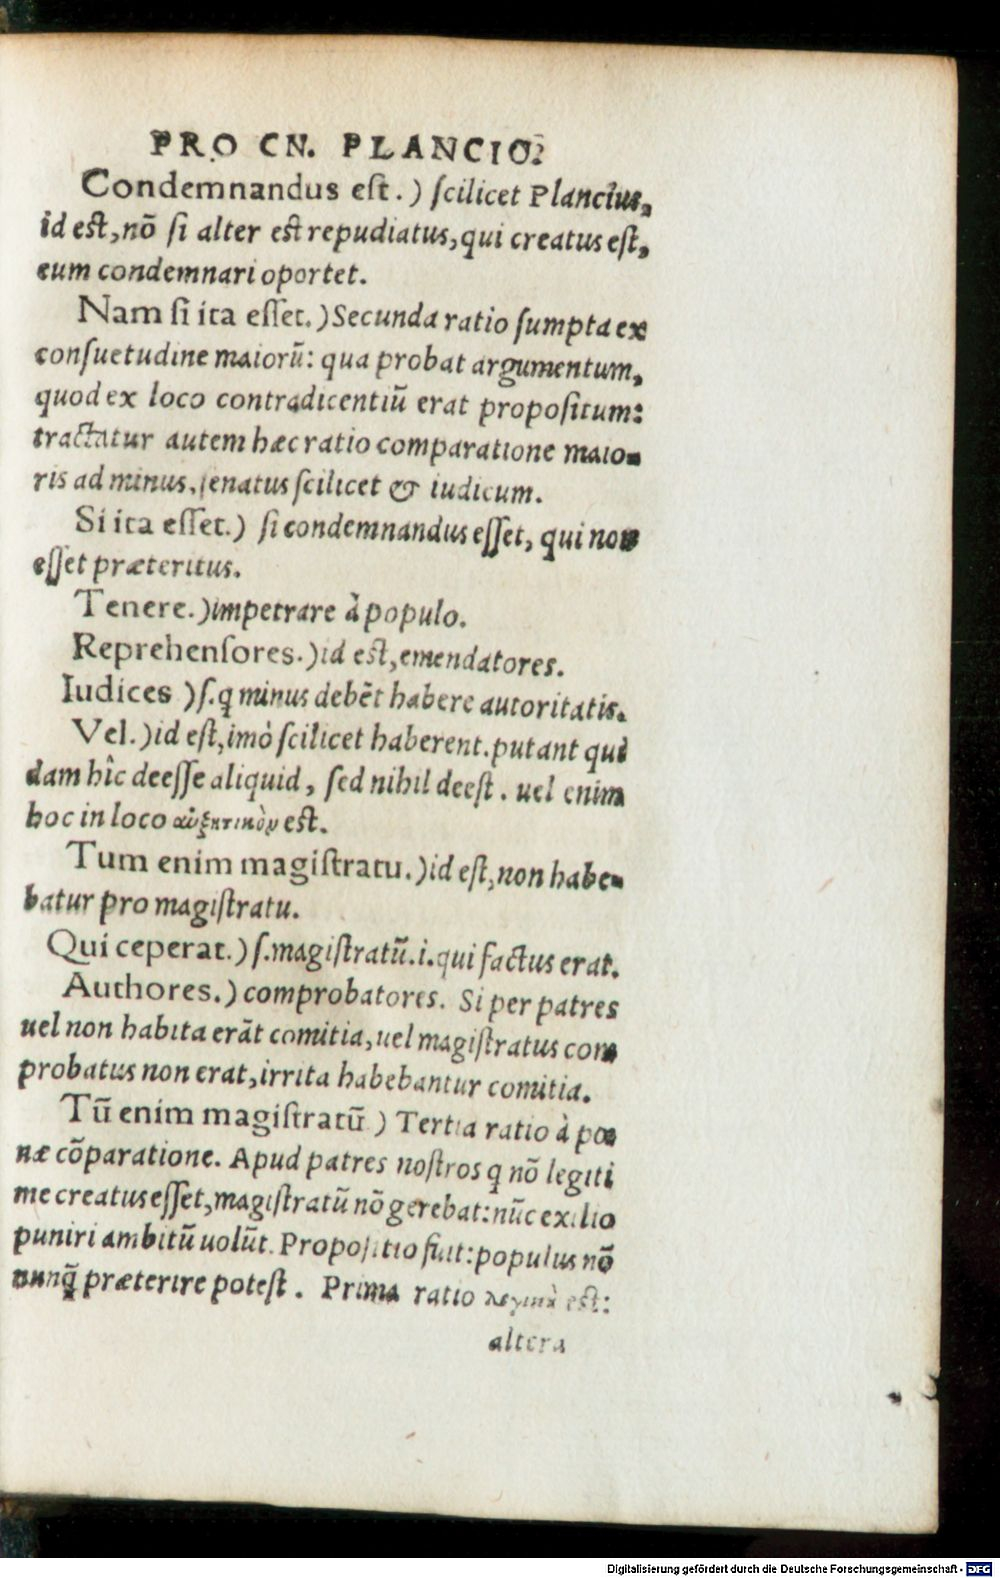 PRO CN. PLANCIO.
Condemnandus est.) scilicet Plancius,
id est, nō si alter est repudiatus, qui creatus est,
eum condemnari oportet.
Nam si ita esset.) Secunda ratio sumpta ex
consuetudine maiorū: qua probat argumentum,
quod ex loco contradicentiū erat propositum:
tractatur autem hæc ratio comparatione maio-
ris ad minus, senatus scilicet & iudicum.
Si ita esset.) si condemnandus esset, qui non
esset præteritus.
Tenere.) impetrare à populo.
Reprehensores.) id est, emendatores.
Iudices ) s. q minus debēt habere autoritatis.
Vel.) id est, imò scilicet haberent. putant qui
dam hîc deesse aliquid, sed nihil deest. uel enim
hoc in loco αὐξητικὸν est.
Tum enim magistratu.) id est, non habe-
batur pro magistratu.
Qui ceperat.) s. magistratū. i. qui factus erat.
Authores.) comprobatores. Si per patres
uel non habita erāt comitia, uel magistratus com
probatus non erat, irrita habebantur comitia.
Tū enim magistratū ) Tertia ratio à poe
næ cōparatione. Apud patres nostros q nō legiti
me creatus esset, magistratū nō gerebat: nūc exilio
puniri ambitū uolūt. Propositio fuit: populus nō
nunq̃ præterire potest. Prima ratio est:
altera
Digitalisierung gefördert durch die Deutsche Forschungsgemeinschaft - DFG